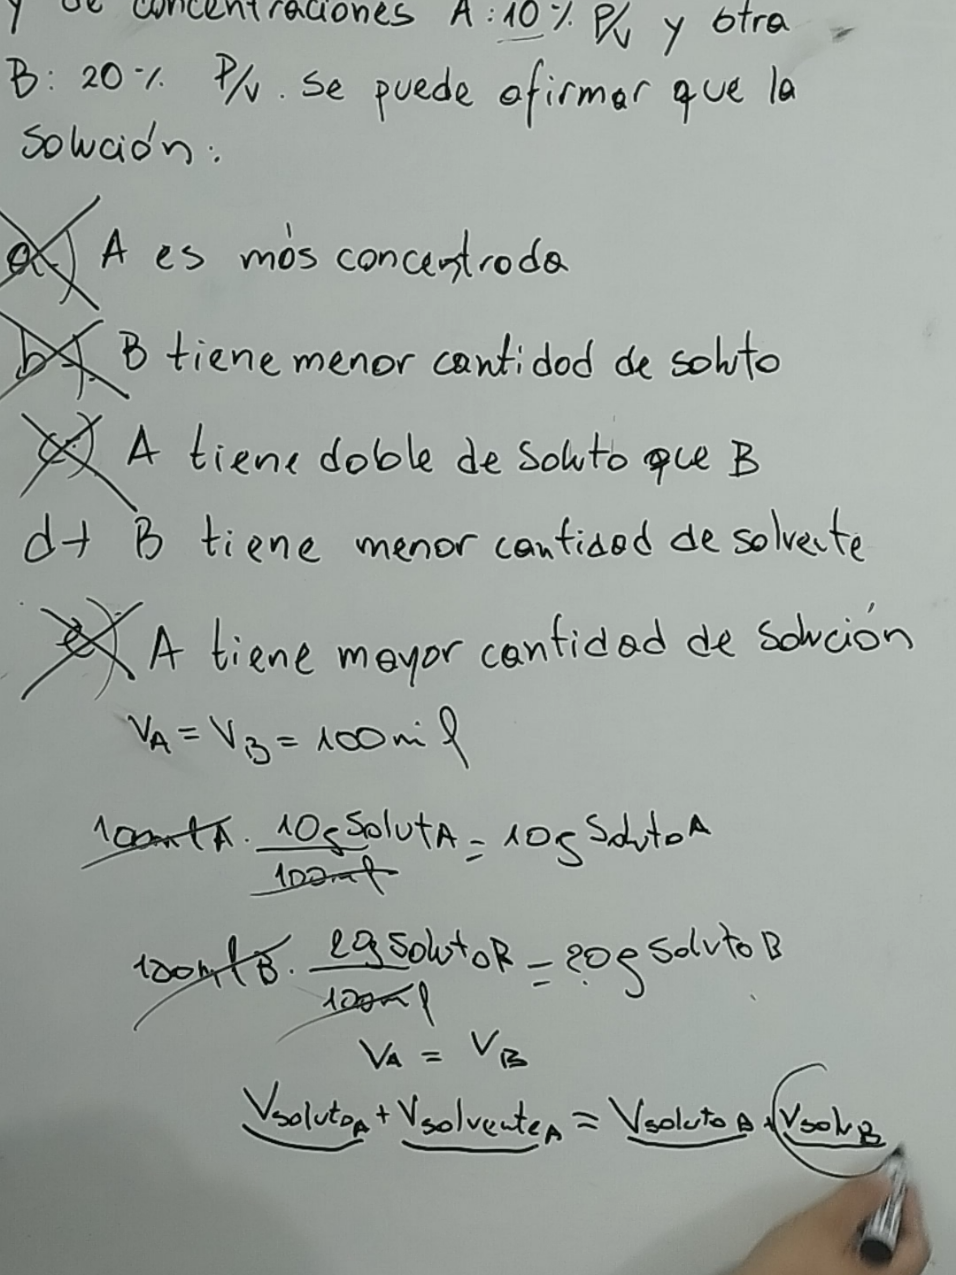 y de concentraciones A: 10% P/v y otra
B: 20% P/v. Se puede afirmar que la
solución:
a) A es más concentrada
b) B tiene menor cantidad de soluto
c) A tiene doble de soluto que B
d) B tiene menor cantidad de solvente
e) A tiene mayor cantidad de solución
VA = VB = 100 ml
100ml A . 10g Solut A / 100ml = 10g Soluto A
100ml B . 20g Soluto B / 100ml = 20g Soluto B
VA = VB
Vsoluto A + Vsolvente A = Vsoluto B + Vsolv B